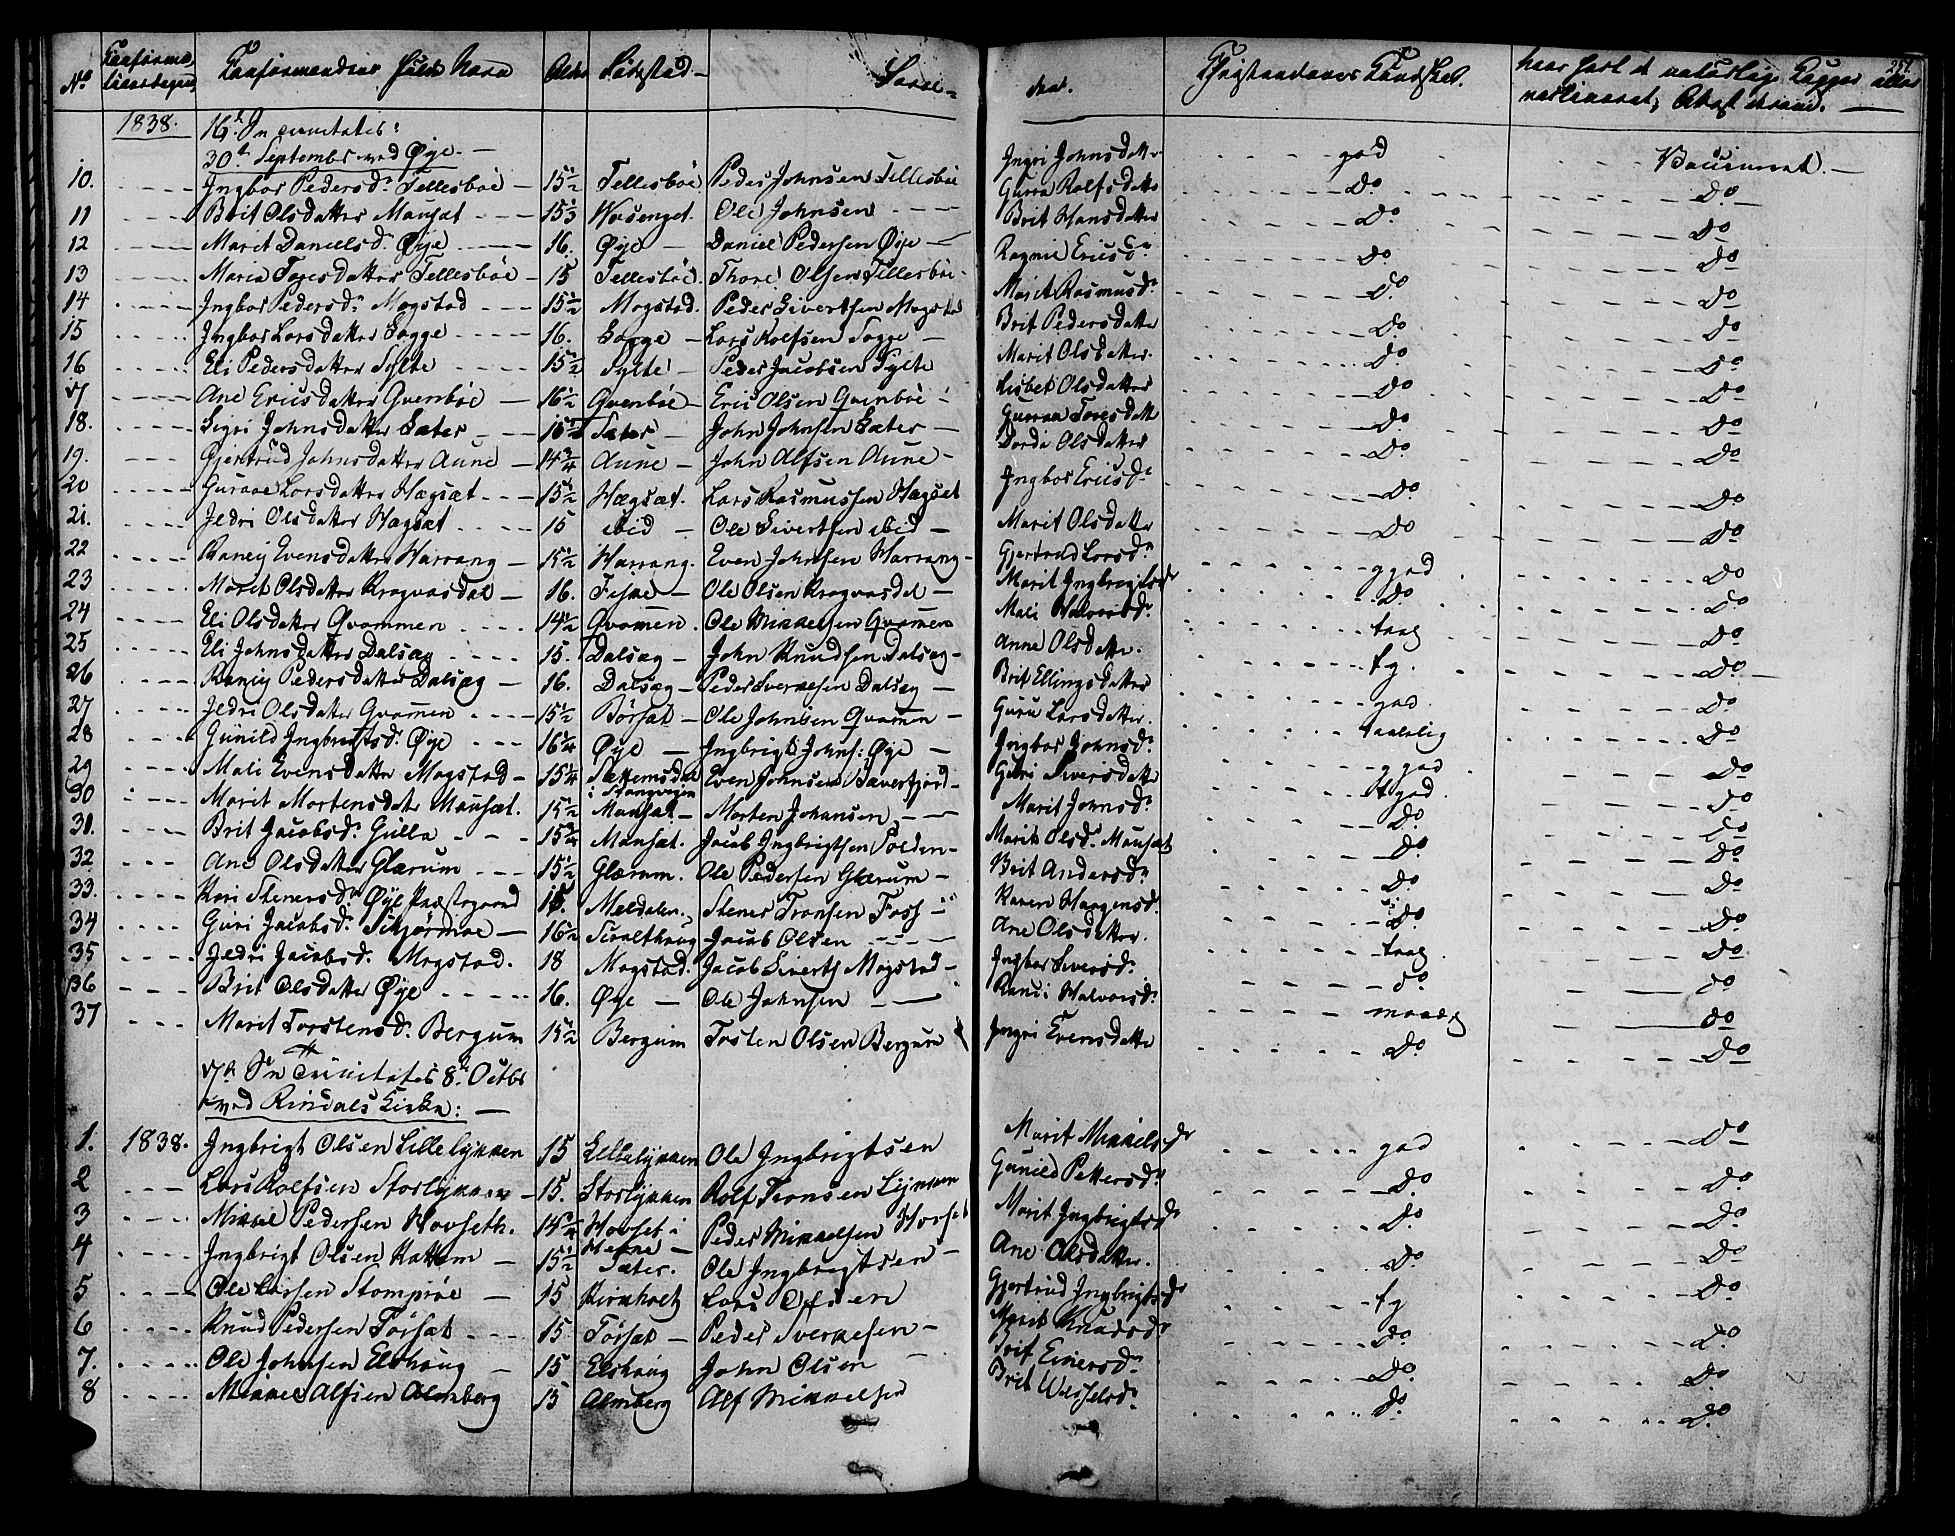 No Confirmationsdagen Confirmandens fulde Navn Alder Fødested Foræl- dre. Christendoms Kundskab. hvor hart de naturlige Kopper eller vaccineret; Attest derom. 251.
1838. 16de S. n Trinitatis:
30te Septembr ved Øye. —
10. Ingbor Pedersd. Tellesböe — 15½ Tellesböe Peder Johnsen Tellesböe Ingri Johnsdatter god Vaccineret. —
11 Brit Olsdatter Mauset 15⅓ Ole Johnsen Guraa Rolfsdatter Do Do
12 Marit Danielsd. Øye 16. Øye — Daniel Pedersen Øye — Brit Hansdatter Do Do
13 Maria Toresdatter Tellesböe — 15 Tellesböe Thore Olsen Tellesböe Ragnil Ericsd. Do Do
14 Ingbor Pedersd. Mogstad 15½ Mogstad. Peder Sivertsen Mogstad Marit Rasmusd. Do Do
15 Ingbor Larsdatter Sogge 16. Sogge — Lars Rolfsen Sogge — Brit Pedersdatter Do Do
16 Eli Pedersdatter Sylte 15½ Sylte — Peder Jacobsen Sylte Marit Olsdatter. Do Do
17 Ane Ericsdatter Qvenböe — 16½ Qvenböe — Eric Olsen Qvenböe Lisbet Olsdatter Do Do
18. Sigri Johnsdatter Sæter 15½ Sæter — John Johnsen Sæter — Guraa Toresdatt Do Do
19. Gjertrud Johnsdatter Aune — 14¾ Aune — John Alfsen Aune — Dordi Olsdatter Do Do
20 Guraae Larsdatter Hægsæt 15½ Hægsæt. Lars Rasmussen Hægset Ingbor Ericsd. Do Do
21. Jedri Olsdatter Hægsæt 15 ibid — Ole Sivertsen ibid — Marit Olsdatter Do Do
22 Raneig Evensdatter Harrang — 15½ Harrang. Even Johnsen Harrang — Gjertrud Larsd. ggod Do
23 Marit Olsdatter Krogvasdal — 16. Feske — Ole Olsen Krogvasdal — Marit Ingbrigtsd. Do Do
24 Eli Olsdatter Qvammen 14½ Qvamen. Ole Mikkelsen Qvamen Mali Halvorsd. taag Do
25 Eli Johnsdatter Dalsæg 15. Dalsæg — John Knudsen Dalsæg — Anne Olsdatter. tg. Do
26 Raneig Pedersdatter Dalsæg — 16. Dalsæg — Peder Sverkesen Dalsæg — Brit Ellingsdatter god. Do
27 Jedri Olsdatter Qvamen 15½ Börset — Ole Johnsen Qvamen — Guru Larsdatter. taalelig Do
28 Gunild Ingbrigtsd. Øye 16¼ Øye — Ingbrigt Johns: Øye — Ingbor Johnsd. ggod Do
29 Mali Evensdatter Mogstad — 15¼ Sættemsdal i Stangvigen Even Johnsen Bæverfjord — Guri Siversdatter tgod. Do
30 Marit Mortensdatr Mauset. 15½ Mauset — Morten Johansen — Marit Johnsd. Do Do
31. Brit Jacobsd. Gulla 15¾ Mauset. Jacob Ingbrigtsen Polden — Marit Olsd. Mauset Do Do
32. Ane Olsdatter Glærum 15½ Glærum. Ole Pedersen Glærum — Brit Andersd. Do Do
33. Kari Stenersd. Øye Præstegaard 15. Meldalen. Stener Tronsen Foss Karen Haagensd. Do Do
34 Guri Jacobsd. Skjørmoe — 16½ Jacob Olsen Ane Olsdatter. taag Do
35 Jedri Jacobsd. Mogstad. 18 Mogstad. Jacob Siverts Mogstad — Ingbor Siversd. do do
36 Brit Olsdatter Øye 16. Øye — Ole Johnsen Ranei Halvorsd. maadg do
37 Marit Torstensd. Bergum 15½ Bergum Tosten Olsen Bergum Ingri Evensdatter Do Do
17de S. n Trinitates 8de Octbr
ved Rindals Kirke: —
1. 1838. Ingbrigt Olsen Lillelykken 15 Lillelykken Ole Ingbrigtsen Marit Mikkelsdr god Do
2 Lars Rolfsen Storlykken — 15. Storlykken Rolf Tronsen Lykken Gunild Pettersd. Do Do
3 Mikkel Pedersen Hovseth. 14¾ Hovset i Peder Mikkelsen Hovset Marit Ingbrigtsdr Do Do
4 Ingbrigt Olsen Kattem — 15½ Sæter. Ole Ingbrigtsen — Ane Olsdatter. Do Do
5 Ole Larsen Stomprøe — 15 Kirkholt Lars Olsen Gjertrud Ingbrigtsdr tg Do
6 Knud Pedersen Törset 15 Törset — Peder Sverkesen — Marit Knudsdr Do Do
7. Ole Johnsen Elshaug — 15 Elshaug John Olsen — Brit Einersd. Do Do
8 Mikkel Alfsen Almberg 15 Almberg Alf Mikkelsen Brit Wesselsd. Do Do